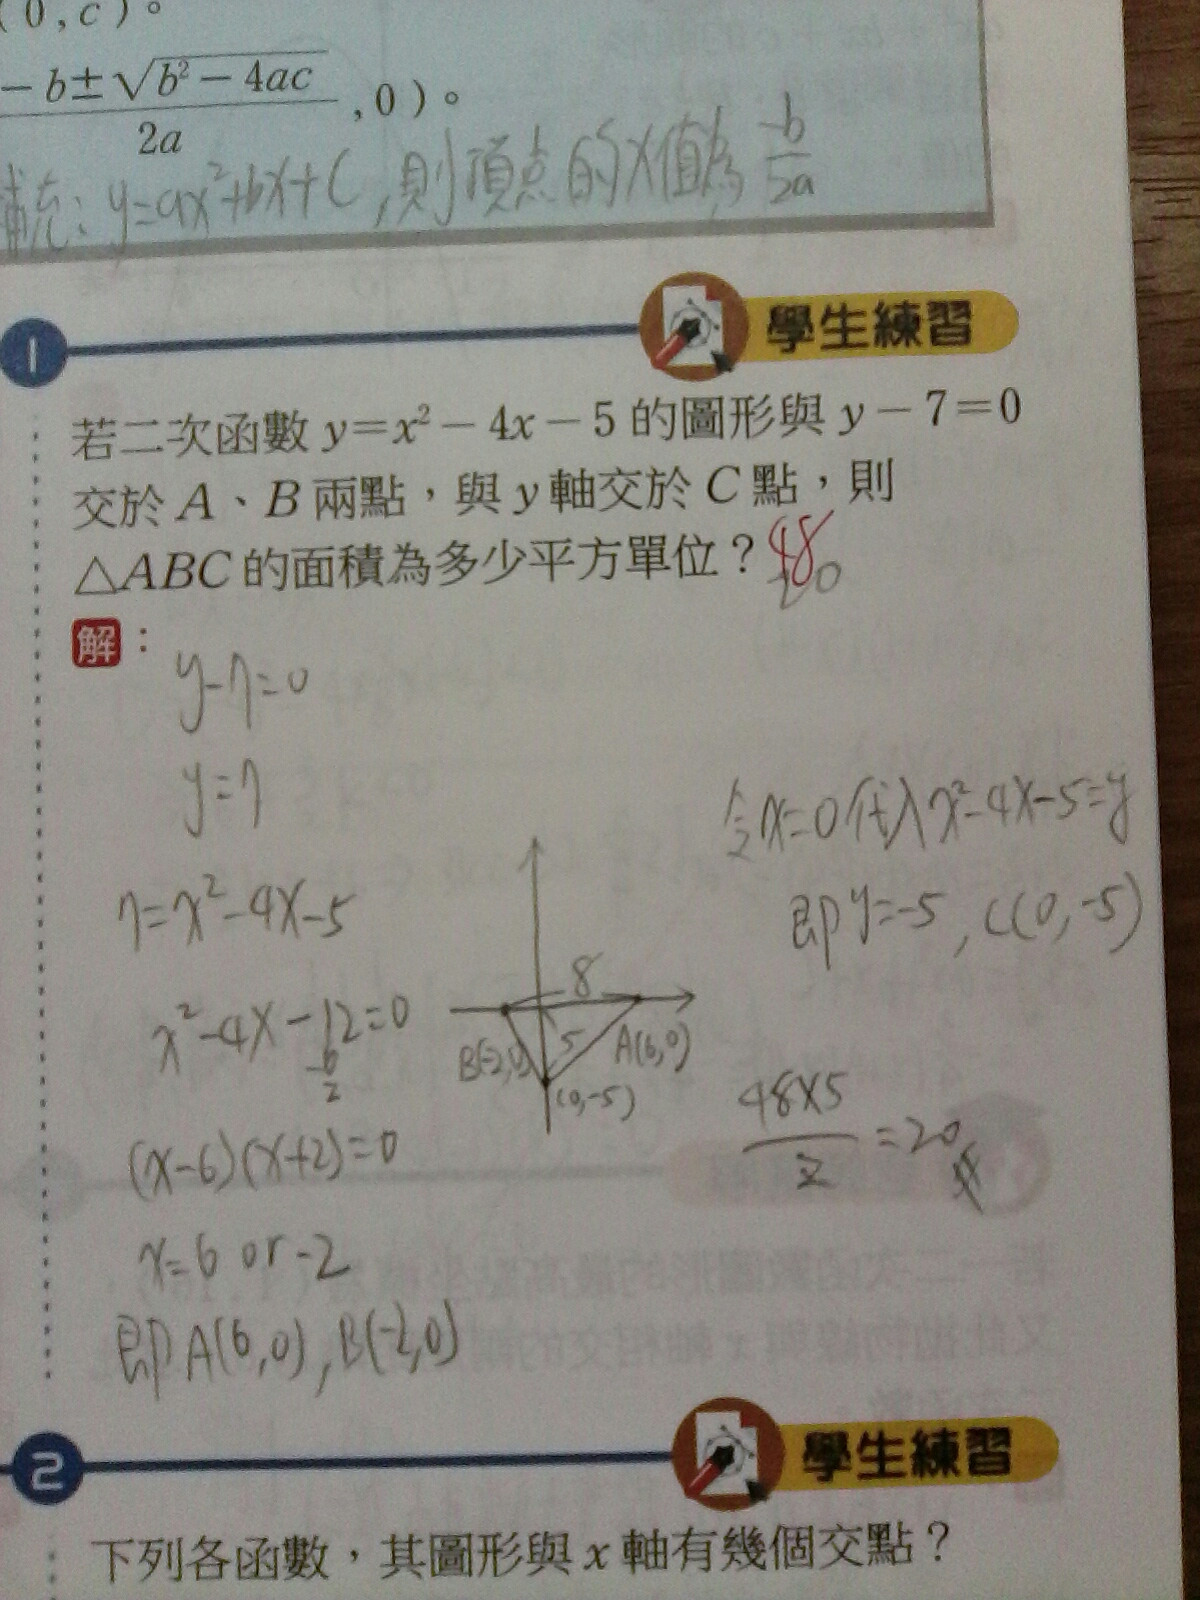 (0,c)。
-b±√b²-4ac
2a
,0)。
補充:y=ax²+bx+c,則頂点的x值為 -b
2a
1
學生練習
若二次函數 y=x²-4x-5 的圖形與 y-7=0
交於 A、B 兩點,與 y 軸交於 C 點,則
△ABC 的面積為多少平方單位?48
20
解:
y-7=0
y=7
7=x²-4x-5
x²-4x-12=0
-6
2
(x-6)(x+2)=0
x=6 or -2
即A(6,0),B(-2,0)
8
5
B(-2,0)
A(6,0)
(0,-5)
令x=0代入x²-4x-5=y
即y=-5,C(0,-5)
48×5
2
=20
2
學生練習
下列各函數,其圖形與 x 軸有幾個交點?